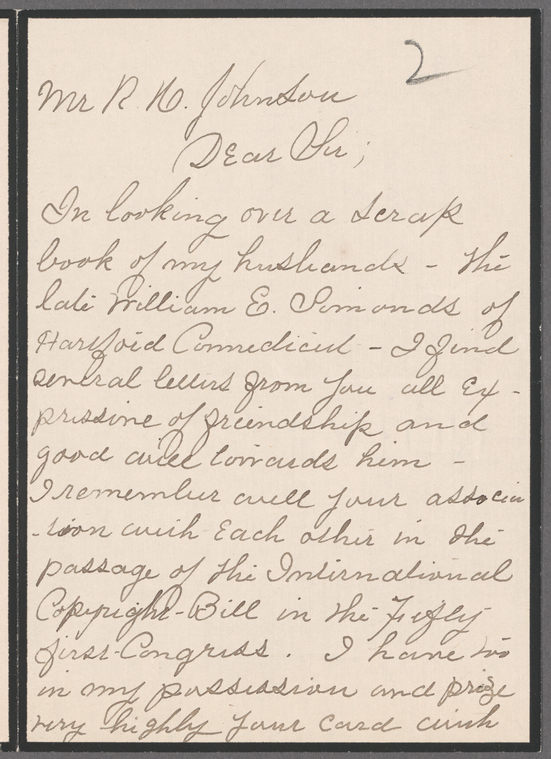 2
Mr R. U. Johnson
Dear Sir;
In looking over a scrap
book of my husbands - the
late William E. Simonds of
Hartford Connecticut - I find
several letters from you all ex-
pressive of friendship and
good will towards him -
I remember well your associa
-tion with each other in the
passage of the International
Copyright-Bill in the Fifty
first-Congress. I have too
in my possession and prize
very highly your card with